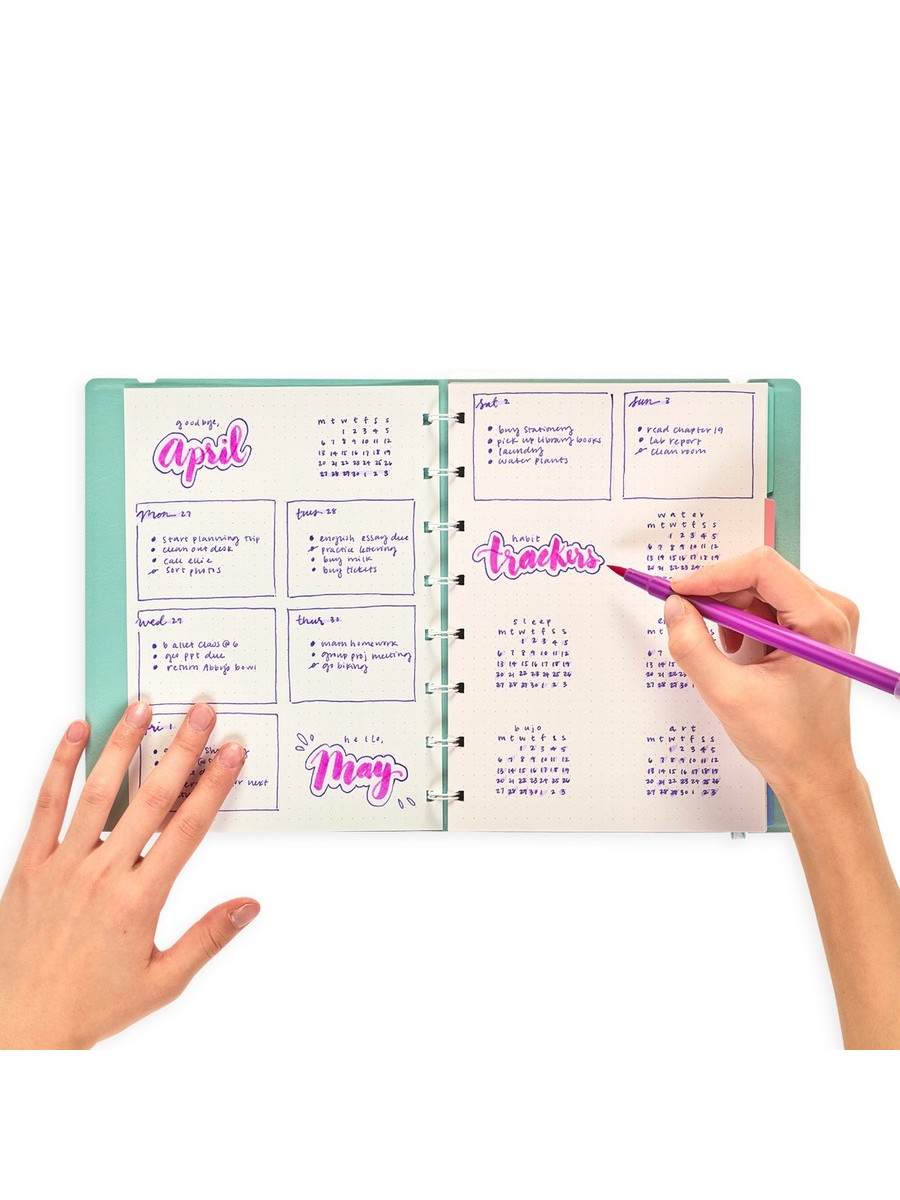 goodbye,
April
m t w t f s s
1 2 3 4 5
6 7 8 9 10 11 12
13 14 15 16 17 18 19
20 21 22 23 24 25 26
27 28 29 30 1 2 3
mon 27
start planning trip
clean out desk
call ellie
sort photos
tues 28
english essay due
practice lettering
buy milk
buy tickets
wed 29
ballet class @ 6
geo ppt due
return Abby's bowl
thurs 30
math homework
group proj meeting
go biking
fri 1
next
hello,
May
sat 2
buy stationery
pick up library books
laundry
water plants
sun 3
read chapter 19
lab report
clean room
habit
trackers
water
m t w t f s s
1 2 3 4 5
6 7 8 9 10 11 12
13 14 15 16 17 18 19
20 21
sleep
m t w t f s s
1 2 3 4 5
6 7 8 9 10 11 12
13 14 15 16 17 18 19
20 21 22 23 24 25 26
27 28 29 30 1 2 3
m t
6 7
13 14 15
20 21
27 28 29 30
bujo
m t w t f s s
1 2 3 4 5
6 7 8 9 10 11 12
13 14 15 16 17 18 19
20 21 22 23 24 25 26
27 28 29 30 1 2 3
art
m t w t f s s
1 2 3 4 5
6 7 8 9 10 11 12
13 14 15 16 17 18 19
20 21 22 23 24 25 26
27 28 29 30 1 2 3